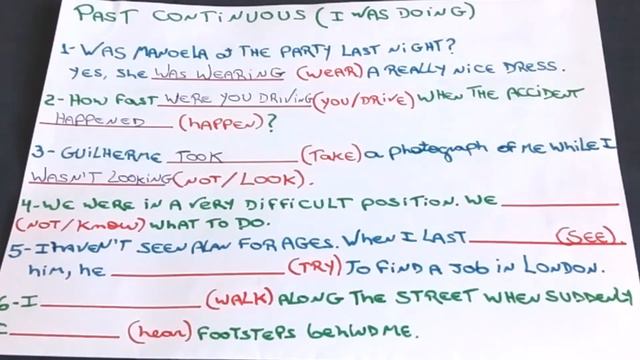 PAST CONTINUOUS (I WAS DOING)
1- WAS MANOELA at THE PARTY LAST NIGHT?
Yes, She WAS WEARING (WEAR) A REALLY NICE DRESS.
2- HOW FAST WERE YOU DRIVING (YOU/DRIVE) WHEN THE ACCIDENT
HAPPENED (HAPPEN)?
3- GUILHERME TOOK (TAKE) a photograph of ME WHILE I
WASN'T LOOKING (NOT/LOOK).
4- WE WERE IN A VERY DIFFICULT POSITION. WE ___________
(NOT/KNOW) WHAT TO DO.
5- I HAVEN'T SEEN ALAN FOR AGES. WHEN I LAST ___________ (SEE).
him, he ___________ (TRY) TO FIND A JOB IN LONDON.
6- I ___________ (WALK) ALONG THE STREET WHEN SUDDENLY
I ___________ (hear) FOOTSTEPS behIND ME.